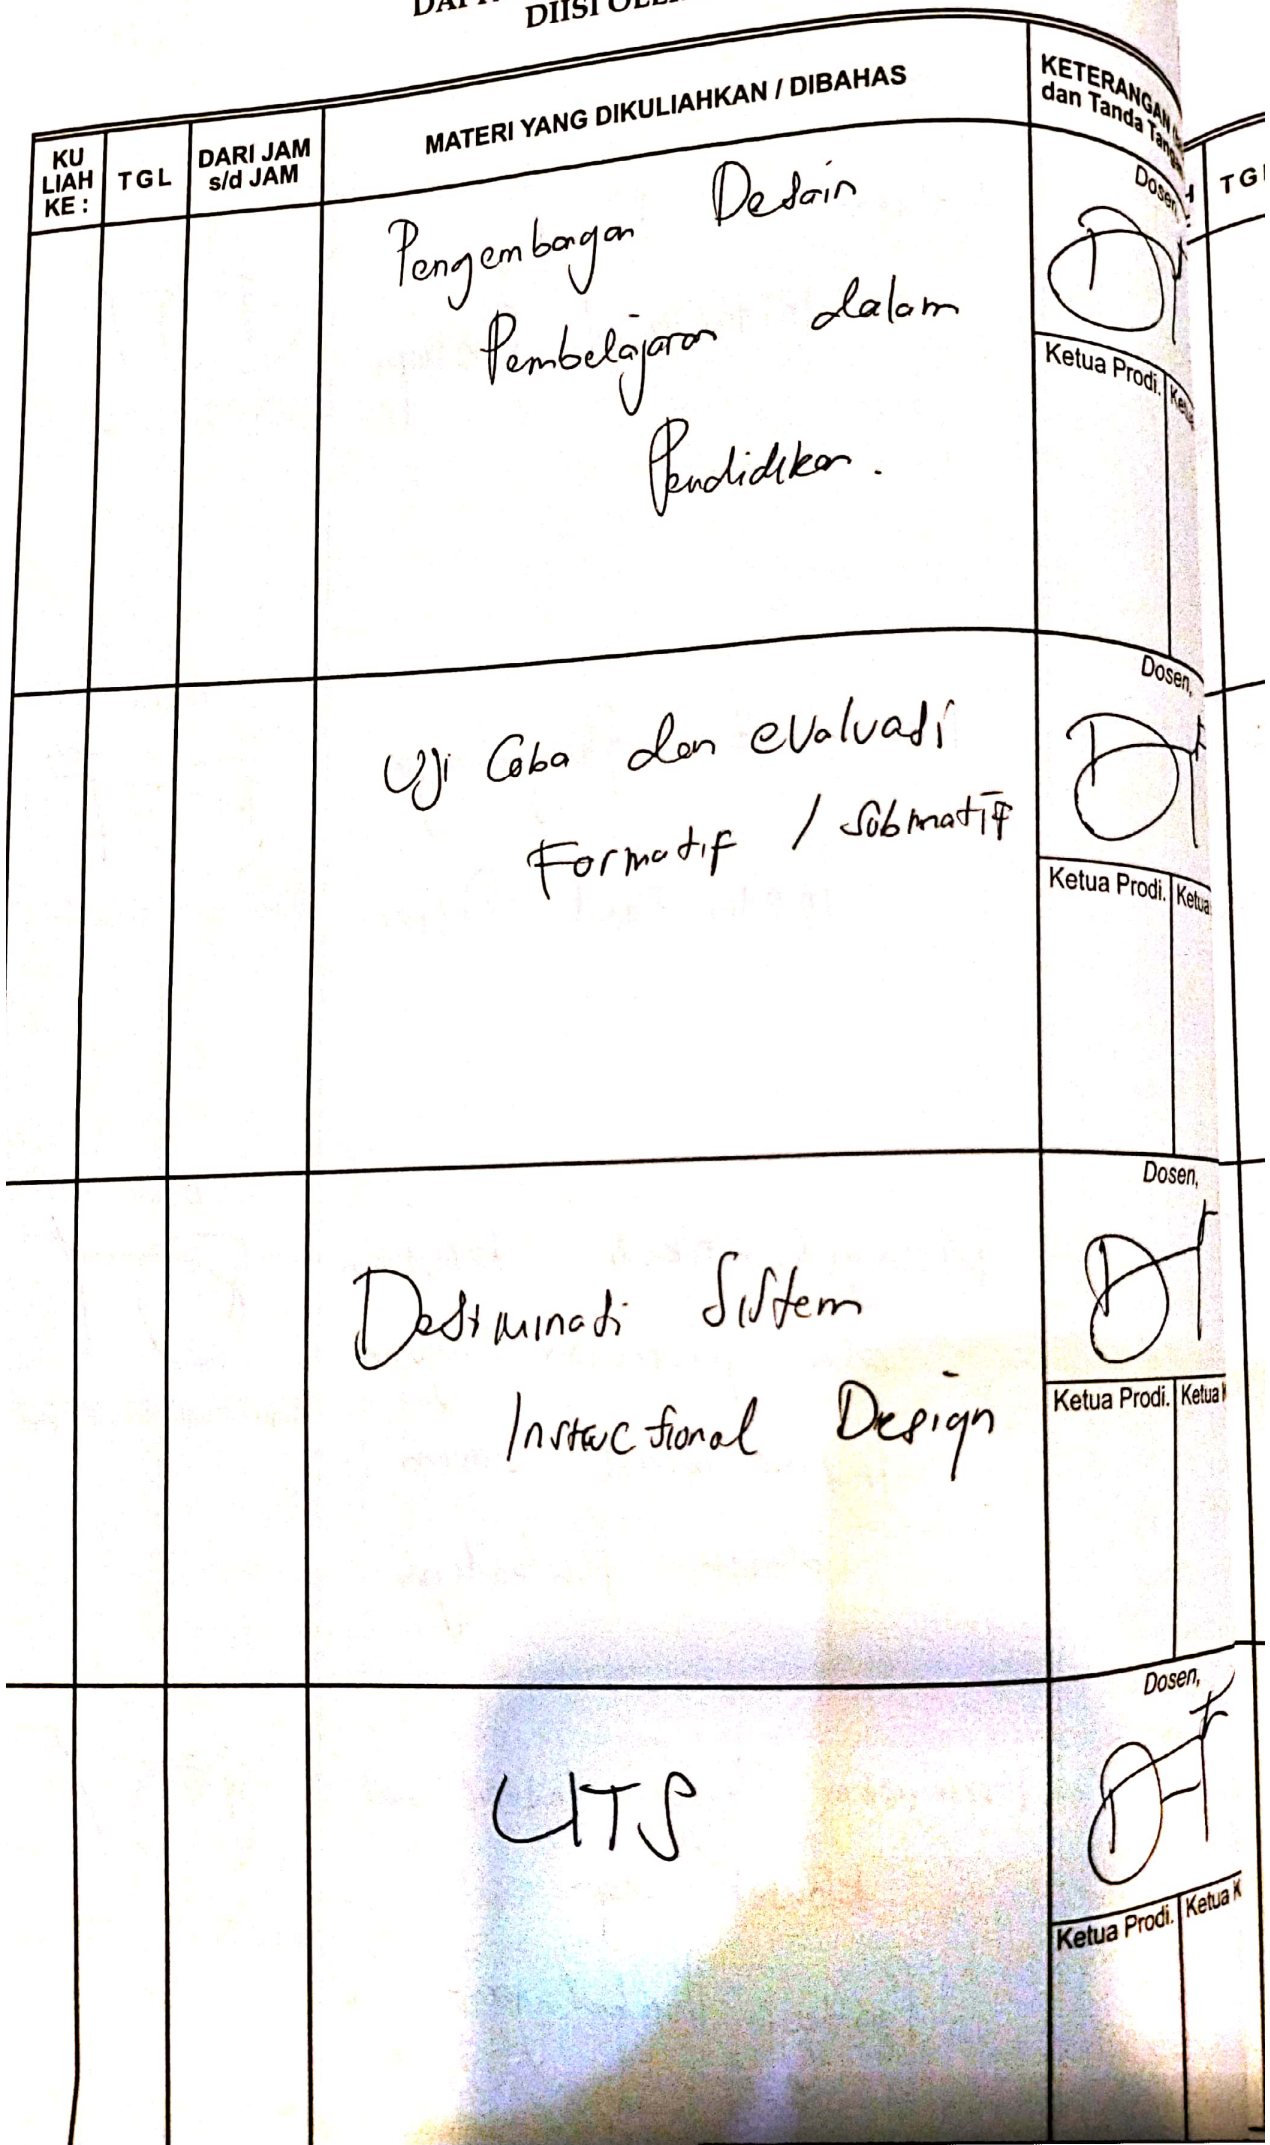 DIISI
KU LIAH KE :
TGL
DARI JAM s/d JAM
MATERI YANG DIKULIAHKAN / DIBAHAS
KETERANGAN
dan Tanda
TGL
Pengembangan Desain
Pembelajaran dalam
Pendidikan.
Dosen,
Ketua Prodi.
Uji Coba dan evaluasi
Formatif / Submatif
Dosen,
Ketua Prodi. Ketua
Desiminasi Sistem
Instructional Design
Dosen,
Ketua Prodi. Ketua
UTS
Dosen,
Ketua Prodi. Ketua K